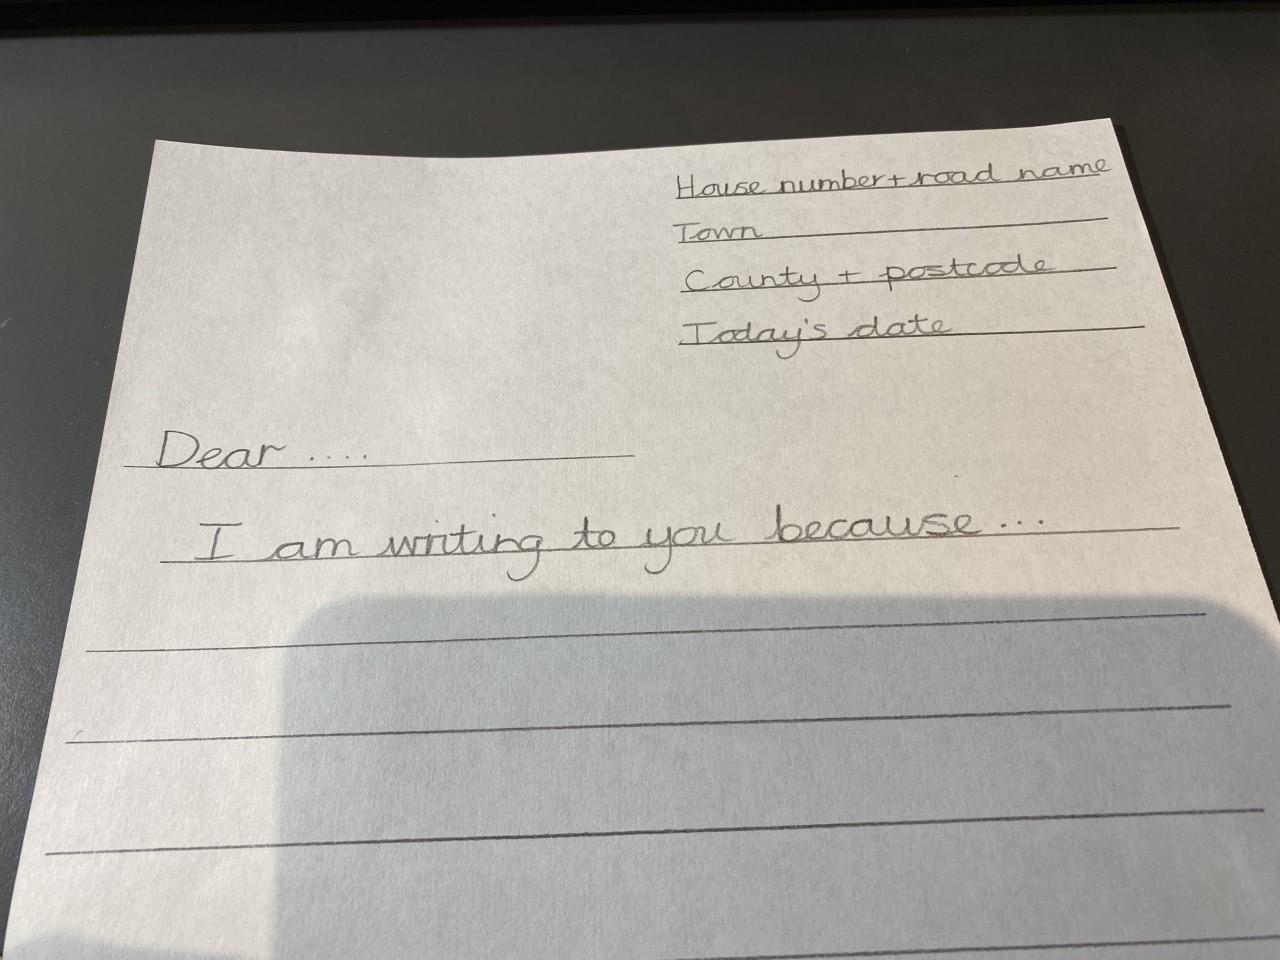 House number + road name
Town
County + postcode
Today's date
Dear ....
I am writing to you because...